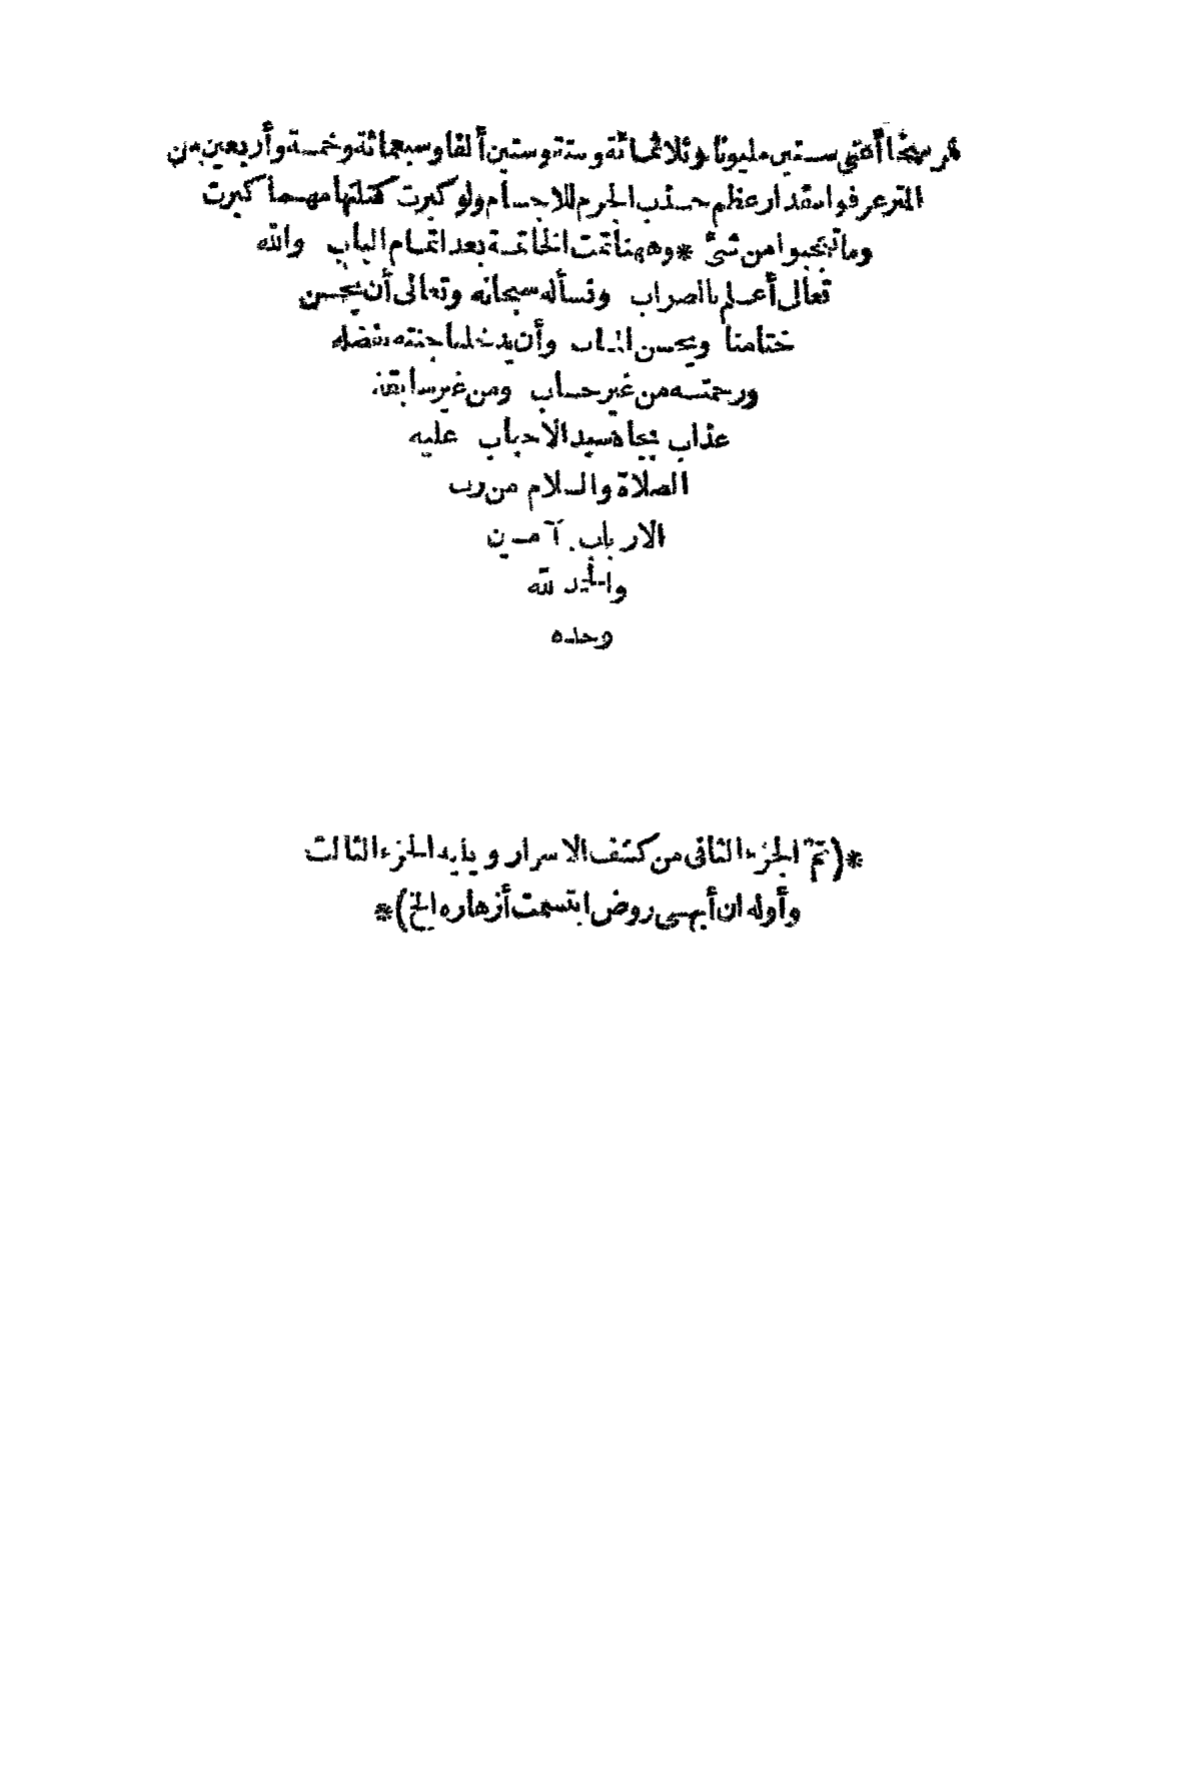 فرسخا أعنى ستين مليونا وثلاثمائة وستة وستين ألفا وسبعمائة وخمسة وأربعين من
المتر عرفوا مقدار عظم جذب الجرم للاجسام ولو كبرت كتلتها مهما كبرت
وما تعجبوا من شئ * وههنا تمت الخاتمة بعد اتمام الباب والله
تعالى أعلم بالصواب ونسأله سبحانه وتعالى أن يحسن
ختامنا ويحسن المآب وأن يدخلنا جنته بفضله
ورحمته من غير حساب ومن غير سابقة
عذاب بجاه سيد الاحباب عليه
الصلاة والسلام من رب
الارباب آمين
والحمد لله
وحده
*(تم الجزء الثانى من كشف الاسرار ويليه الجزء الثالث
وأوله ان أبهى روض ابتسمت أزهاره الخ)*